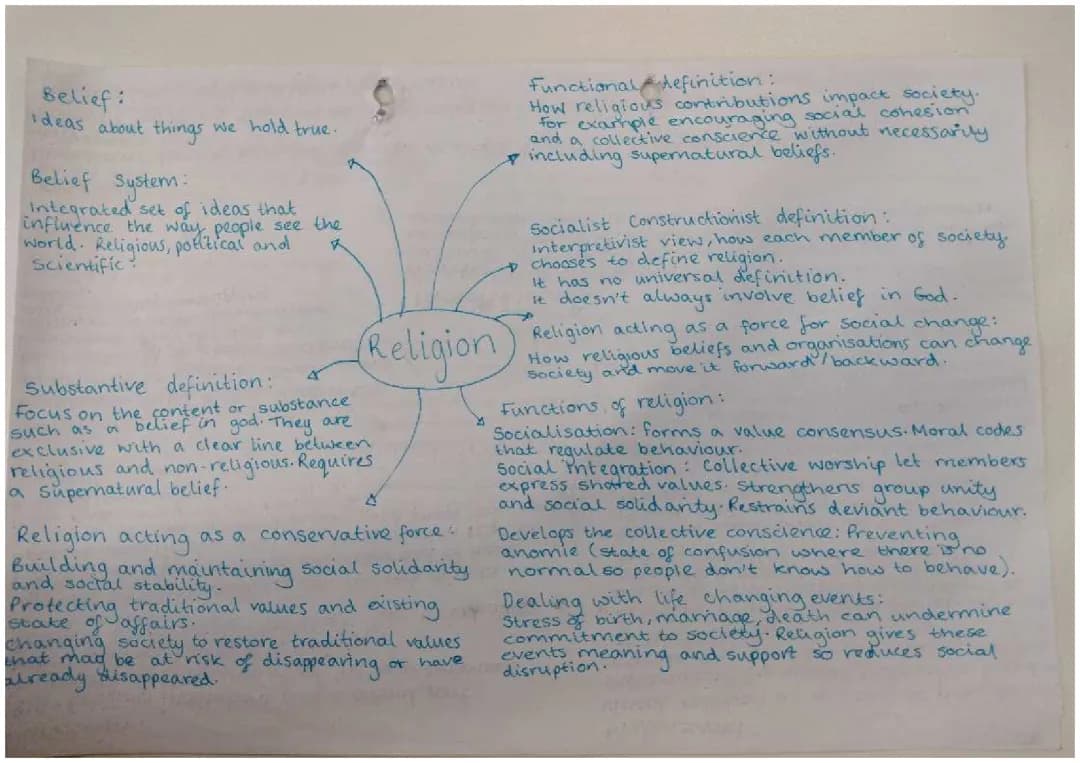 Belief:
ideas about things we hold true.
Belief System:
Integrated set of ideas that
influence the way people see the
world. Religious, political and
Scientific.
Substantive definition:
Focus on the content or substance
such as a belief in god. They are
exclusive with a clear line between
religious and non-religious. Requires
a supernatural belief.
Religion acting as a conservative force:
Building and maintaining social solidarity
and social stability.
Protecting traditional values and existing
state of affairs.
changing society to restore traditional values
that may be at risk of disappearing or have
already disappeared.
Religion
Functional definition:
How religious contributions impact society.
For example encouraging social cohesion
and a collective conscience without necessarily
including supernatural beliefs.
Socialist Constructionist definition:
Interpretivist view, how each member of society
chooses to define religion.
It has no universal definition.
It doesn't always involve belief in God.
Religion acting as a force for social change:
How religious beliefs and organisations can change
society and move it forward/backward.
Functions of religion:
Socialisation: forms a value consensus. Moral codes
that regulate behaviour.
Social Integration: Collective worship let members
express shared values. Strengthens group unity
and social solidarity. Restrains deviant behaviour.
Develops the collective conscience: Preventing
anomie (state of confusion where there is no
normal so people don't know how to behave).
Dealing with life changing events:
Stress of birth, marriage, death can undermine
commitment to society. Religion gives these
events meaning and support so reduces social
disruption.